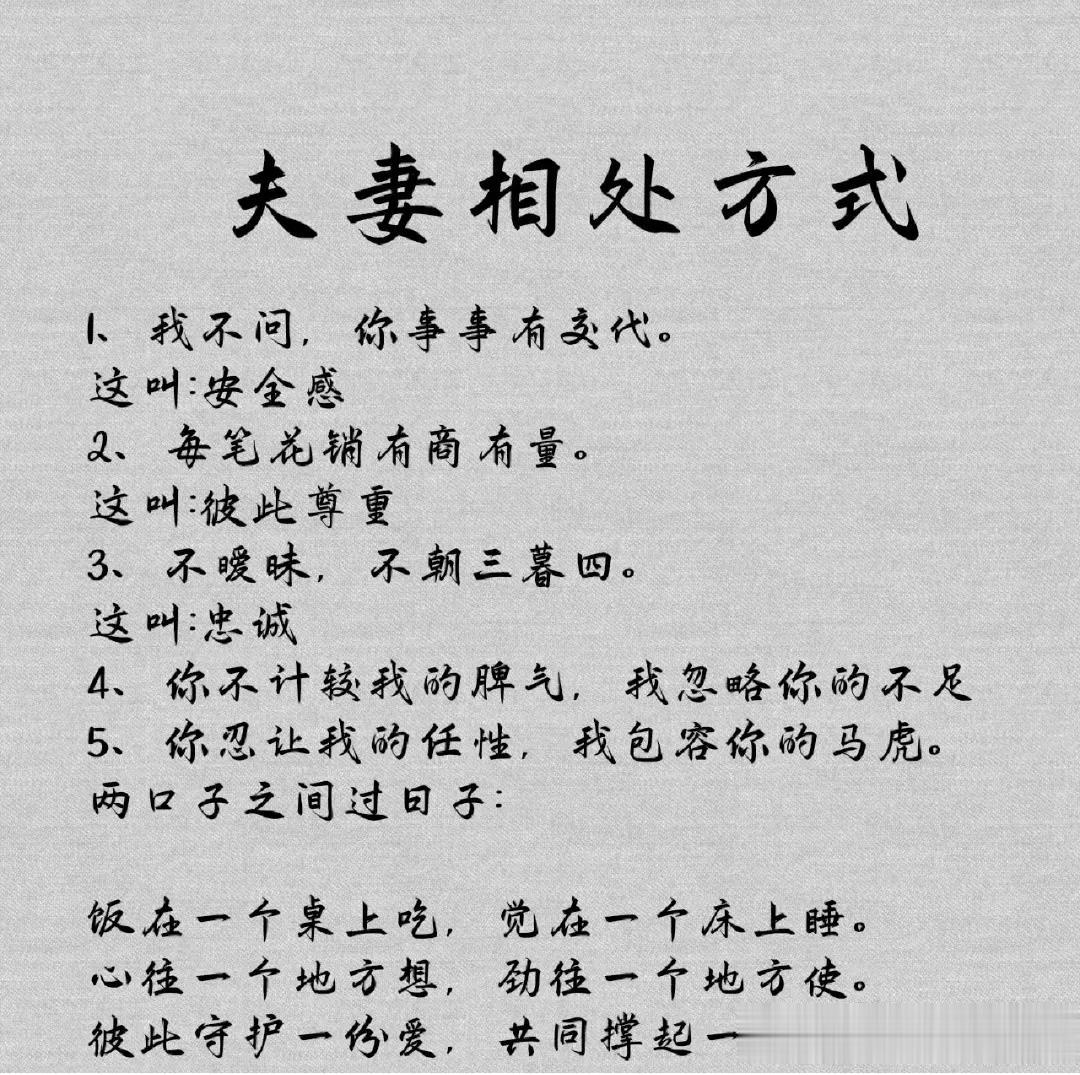 夫妻相处方式
1、我不问，你事事有交代。
这叫:安全感
2、每笔花销有商有量。
这叫:彼此尊重
3、不暧昧，不朝三暮四。
这叫:忠诚
4、你不计较我的脾气，我忽略你的不足
5、你忍让我的任性，我包容你的马虎。
两口子之间过日子:
饭在一个桌上吃，觉在一个床上睡。
心往一个地方想，劲往一个地方使。
彼此守护一份爱，共同撑起一